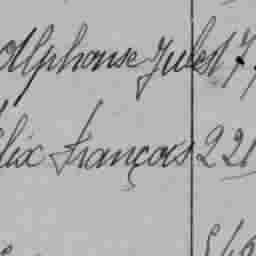 Alphonse Jules 17
lix François 221